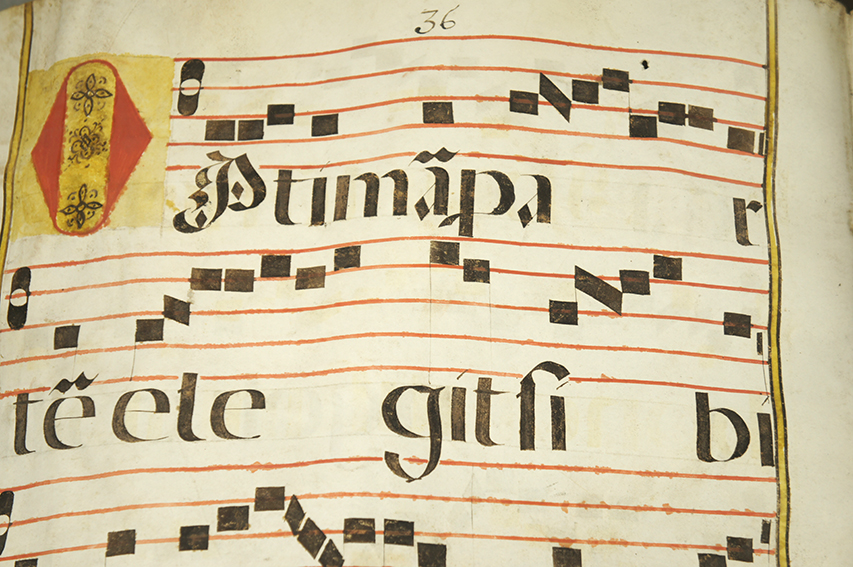 36
OPtimã pa r
tẽ ele git ſi bi